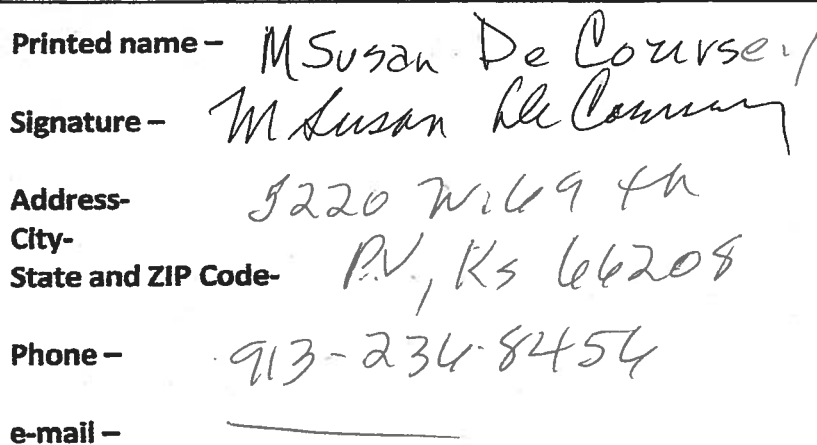 Printed name – M Susan De Coursey
Signature – M Susan De Coursey
Address- 5220 W. 69 th
City-
State and ZIP Code- P.V, Ks 66208
Phone – 913-236-8456
e-mail –